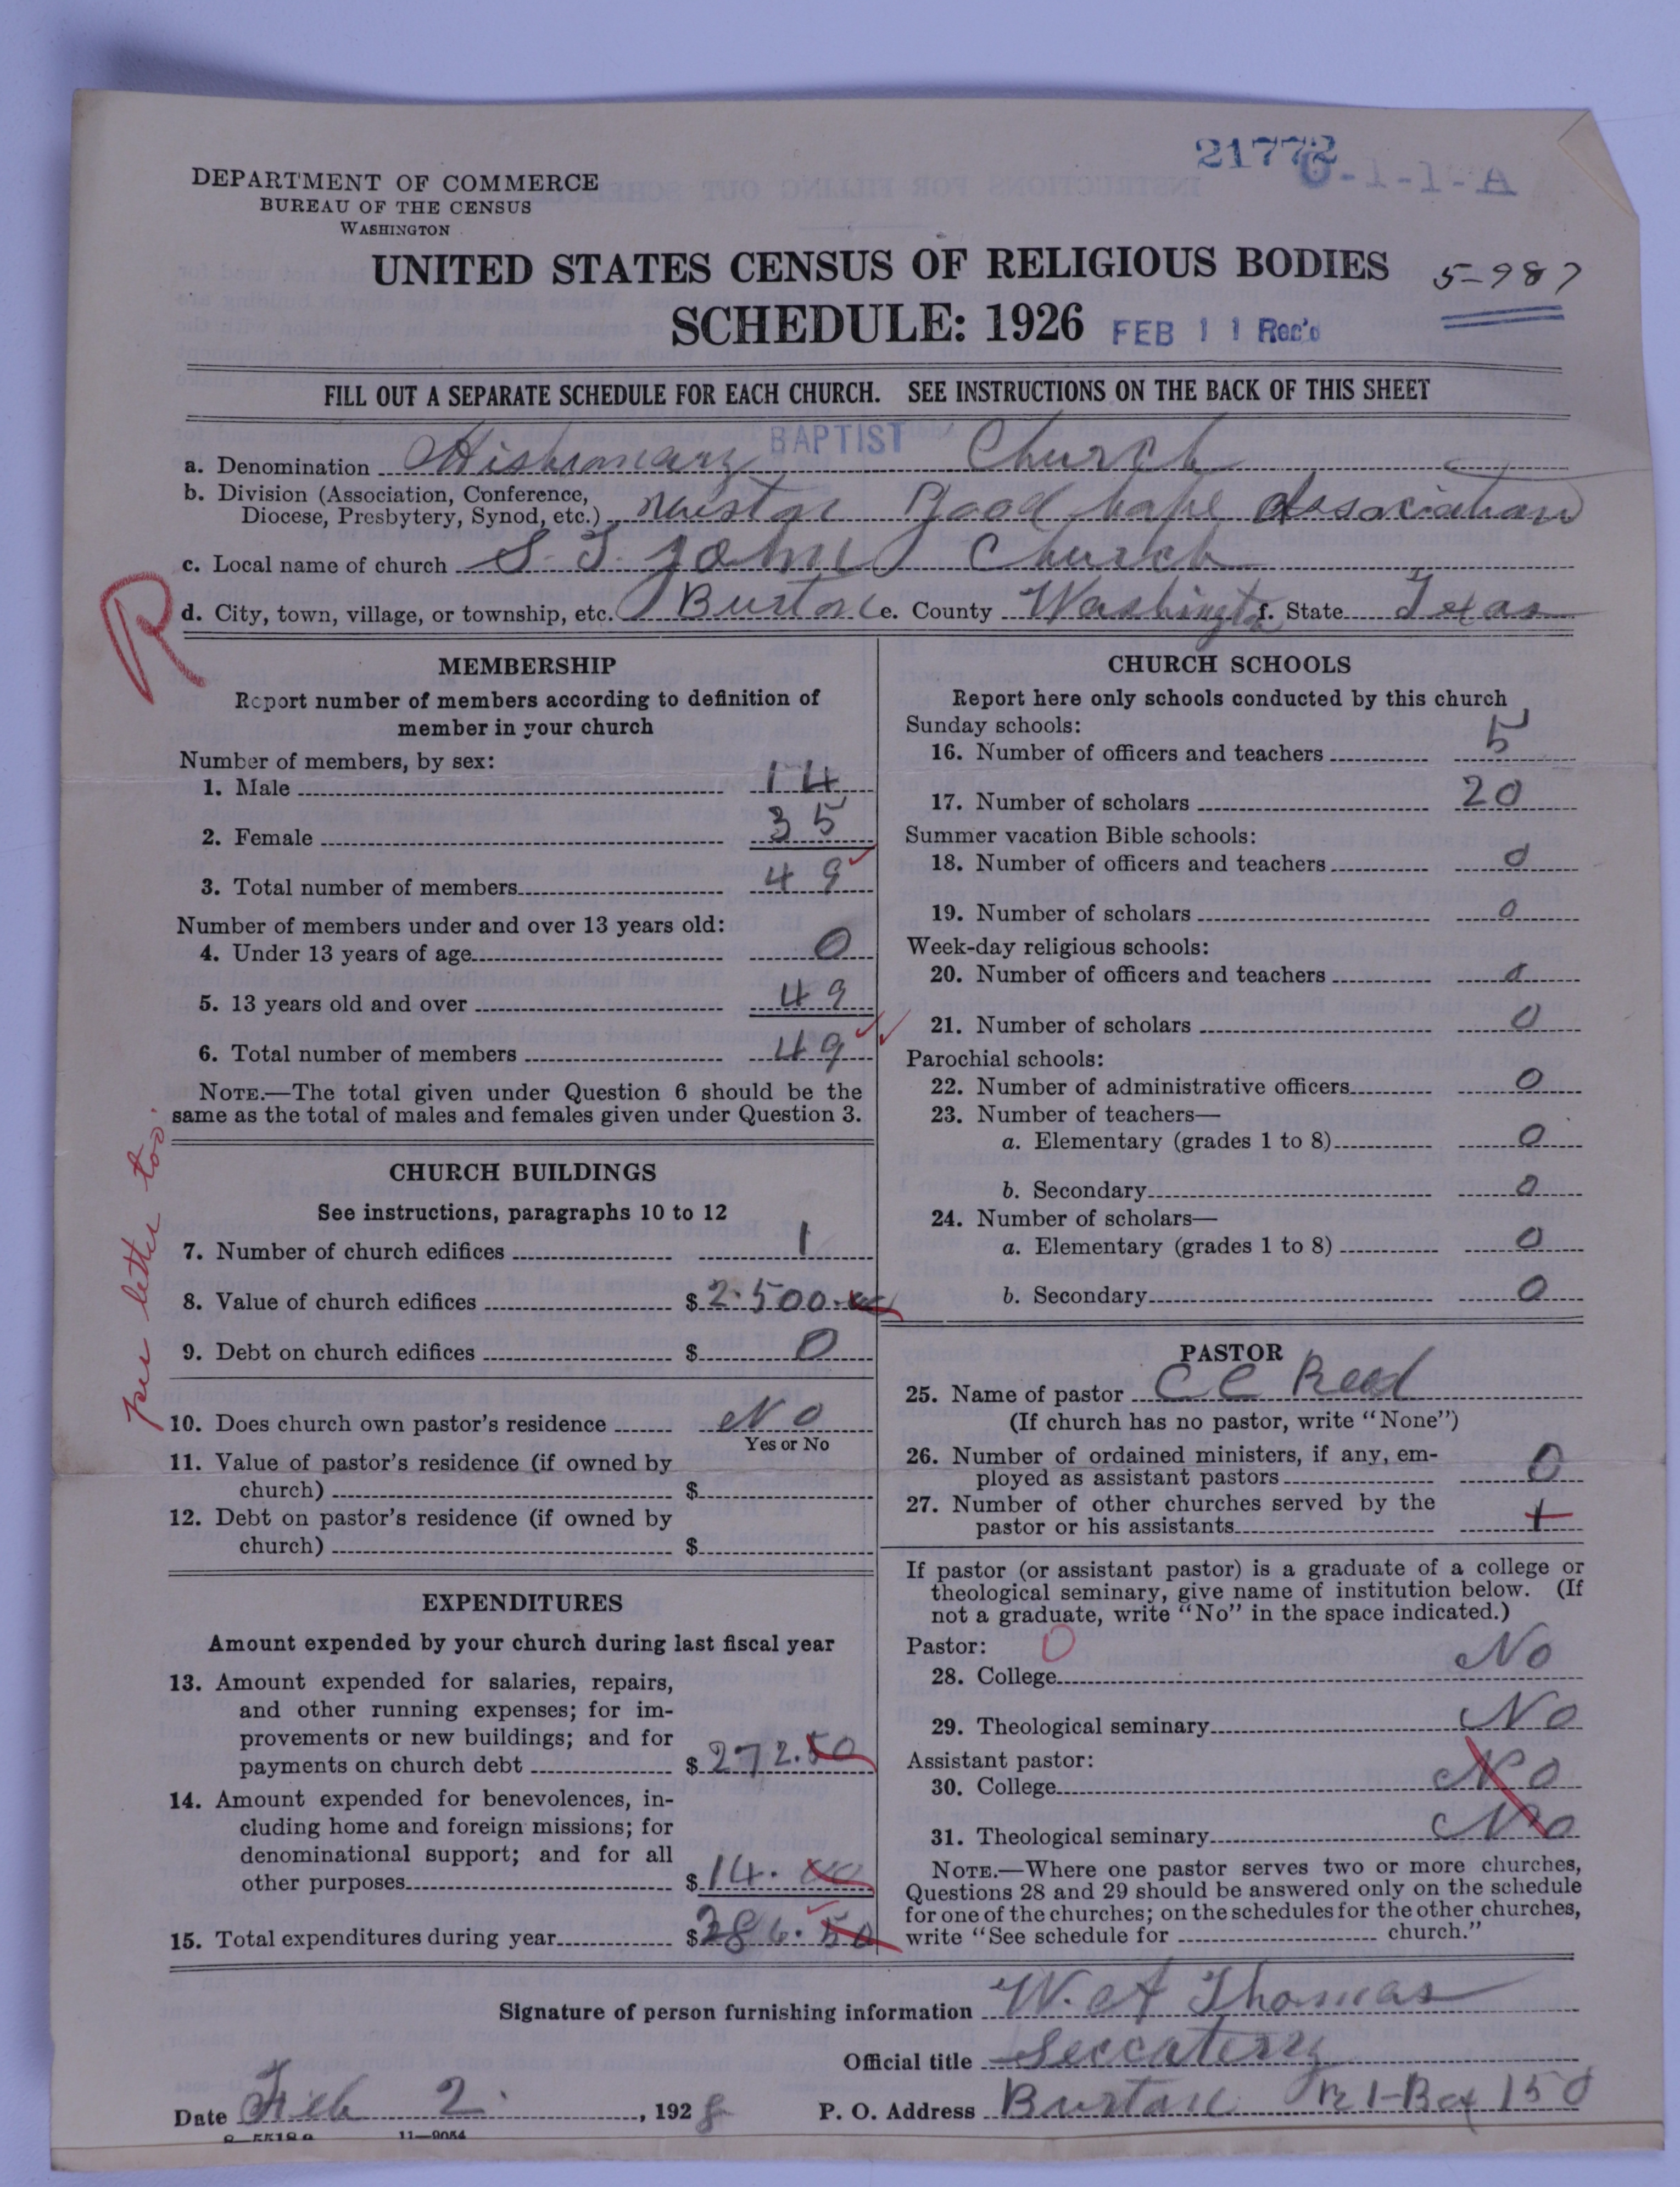 21772
6-1-1-A
DEPARTMENT OF COMMERCE
BUREAU OF THE CENSUS
WASHINGTON
UNITED STATES CENSUS OF RELIGIOUS BODIES
5-987
SCHEDULE: 1926 FEB 11 Rec'd
FILL OUT A SEPARATE SCHEDULE FOR EACH CHURCH. SEE INSTRUCTIONS ON THE BACK OF THIS SHEET
a. Denomination Missionary BAPTIST Church
b. Division (Association, Conference,
Diocese, Presbytery, Synod, etc.) Good hope Association
c. Local name of church S. T. John Church
d. City, town, village, or township, etc. Burton e. County Washington f. State Texas
R
MEMBERSHIP
Report number of members according to definition of
member in your church
Number of members, by sex:
1. Male 14
2. Female 35
3. Total number of members 49
Number of members under and over 13 years old:
4. Under 13 years of age 0
5. 13 years old and over 49
6. Total number of members 49
NOTE.—The total given under Question 6 should be the
same as the total of males and females given under Question 3.
per letter too.
CHURCH BUILDINGS
See instructions, paragraphs 10 to 12
7. Number of church edifices 1
8. Value of church edifices $ 2.500.00
9. Debt on church edifices $ 0
10. Does church own pastor's residence No
Yes or No
11. Value of pastor's residence (if owned by
church) $
12. Debt on pastor's residence (if owned by
church) $
EXPENDITURES
Amount expended by your church during last fiscal year
13. Amount expended for salaries, repairs,
and other running expenses; for im-
provements or new buildings; and for
payments on church debt $ 272.50
14. Amount expended for benevolences, in-
cluding home and foreign missions; for
denominational support; and for all
other purposes $ 14.00
15. Total expenditures during year $ 286.50
CHURCH SCHOOLS
Report here only schools conducted by this church
Sunday schools:
16. Number of officers and teachers 5
17. Number of scholars 20
Summer vacation Bible schools:
18. Number of officers and teachers 0
19. Number of scholars 0
Week-day religious schools:
20. Number of officers and teachers 0
21. Number of scholars 0
Parochial schools:
22. Number of administrative officers 0
23. Number of teachers—
a. Elementary (grades 1 to 8) 0
b. Secondary 0
24. Number of scholars—
a. Elementary (grades 1 to 8) 0
b. Secondary 0
PASTOR
25. Name of pastor C C Reed
(If church has no pastor, write "None")
26. Number of ordained ministers, if any, em-
ployed as assistant pastors 0
27. Number of other churches served by the
pastor or his assistants 1
If pastor (or assistant pastor) is a graduate of a college or
theological seminary, give name of institution below. (If
not a graduate, write "No" in the space indicated.)
Pastor: 0
28. College No
29. Theological seminary No
Assistant pastor:
30. College No
31. Theological seminary No
NOTE.—Where one pastor serves two or more churches,
Questions 28 and 29 should be answered only on the schedule
for one of the churches; on the schedules for the other churches,
write "See schedule for church."
Signature of person furnishing information W. A Thomas
Official title Seccatery
Date Feb 2. , 1928 P. O. Address Burton R 1-Box 150
8-5518a 11—9054